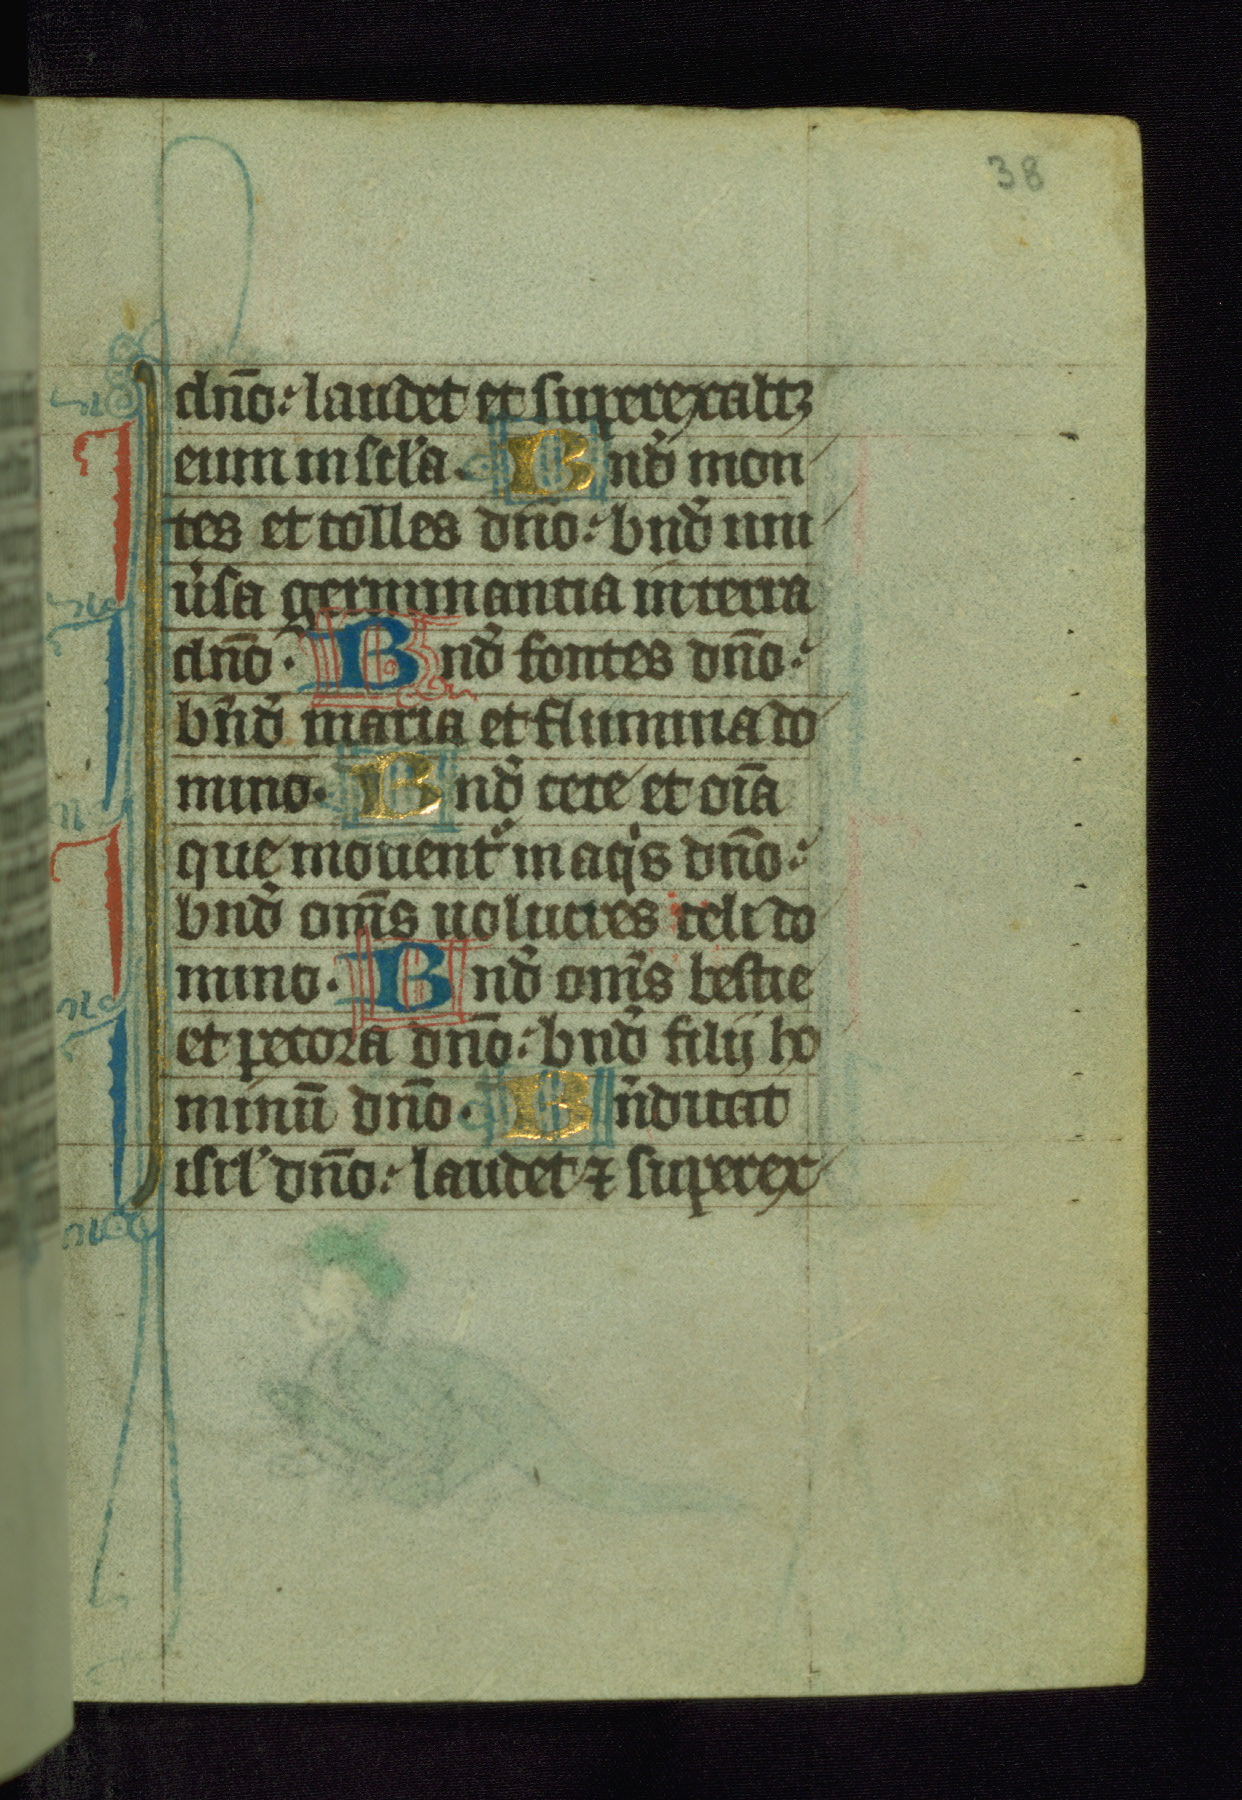 38
dn̄o: laudet et superexaltꝫ
eum in sc̄l'a. Bnd̄ mon
tes et colles dn̄o: bnd̄ uni
u̾sa germinantia in terra
dn̄o. Bnd̄ fontes dn̄o:
bn̄d̄ maria et flumina do
mino. Bnd̄ cete et oīa
que mouentᷣ in aqͥs dn̄o:
bnd̄ om̄s uolucres celi do
mino. Bnd̄ om̄s bestie
et pecora dn̄o: bnd̄ filij ho
minū dn̄o. Bn̄dicat
isrl' dn̄o: laudet ⁊ superex